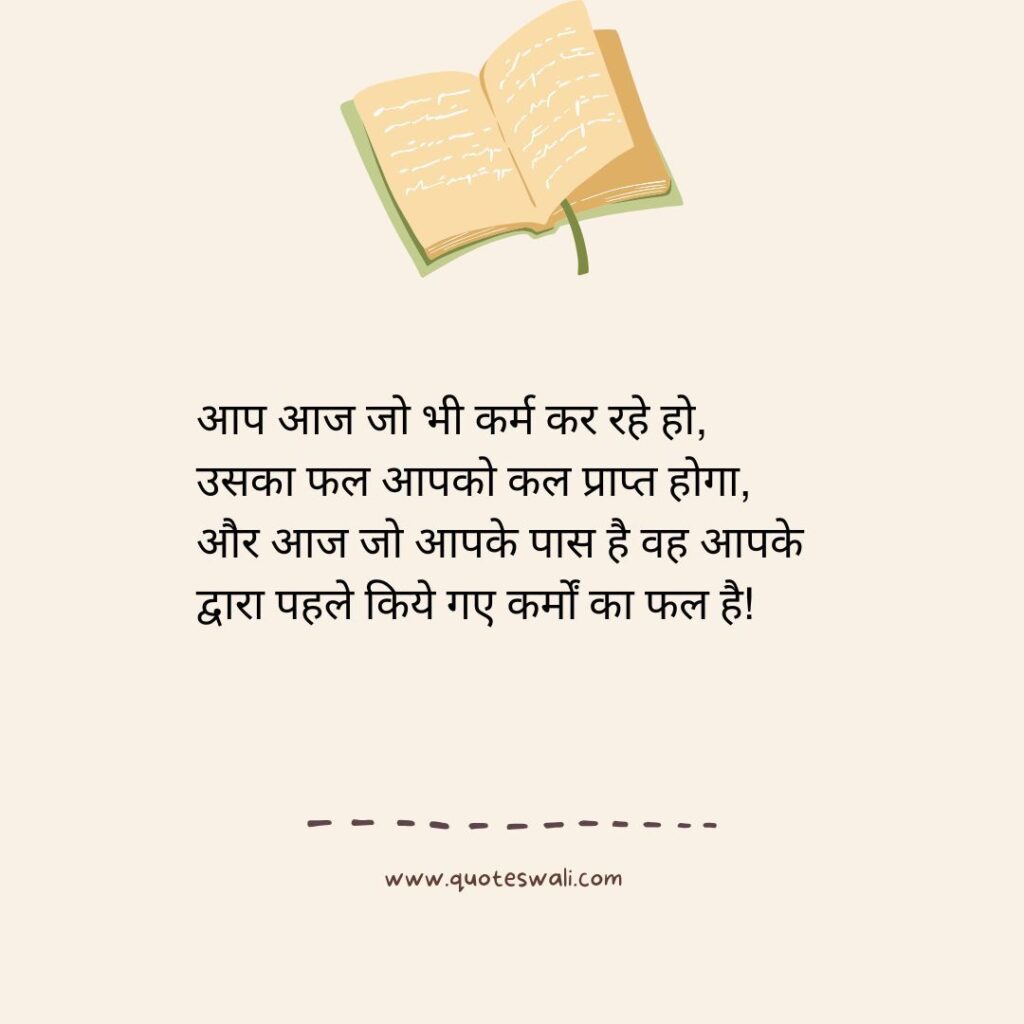 आप आज जो भी कर्म कर रहे हो,
उसका फल आपको कल प्राप्त होगा,
और आज जो आपके पास है वह आपके
द्वारा पहले किये गए कर्मों का फल है!
www.quoteswali.com